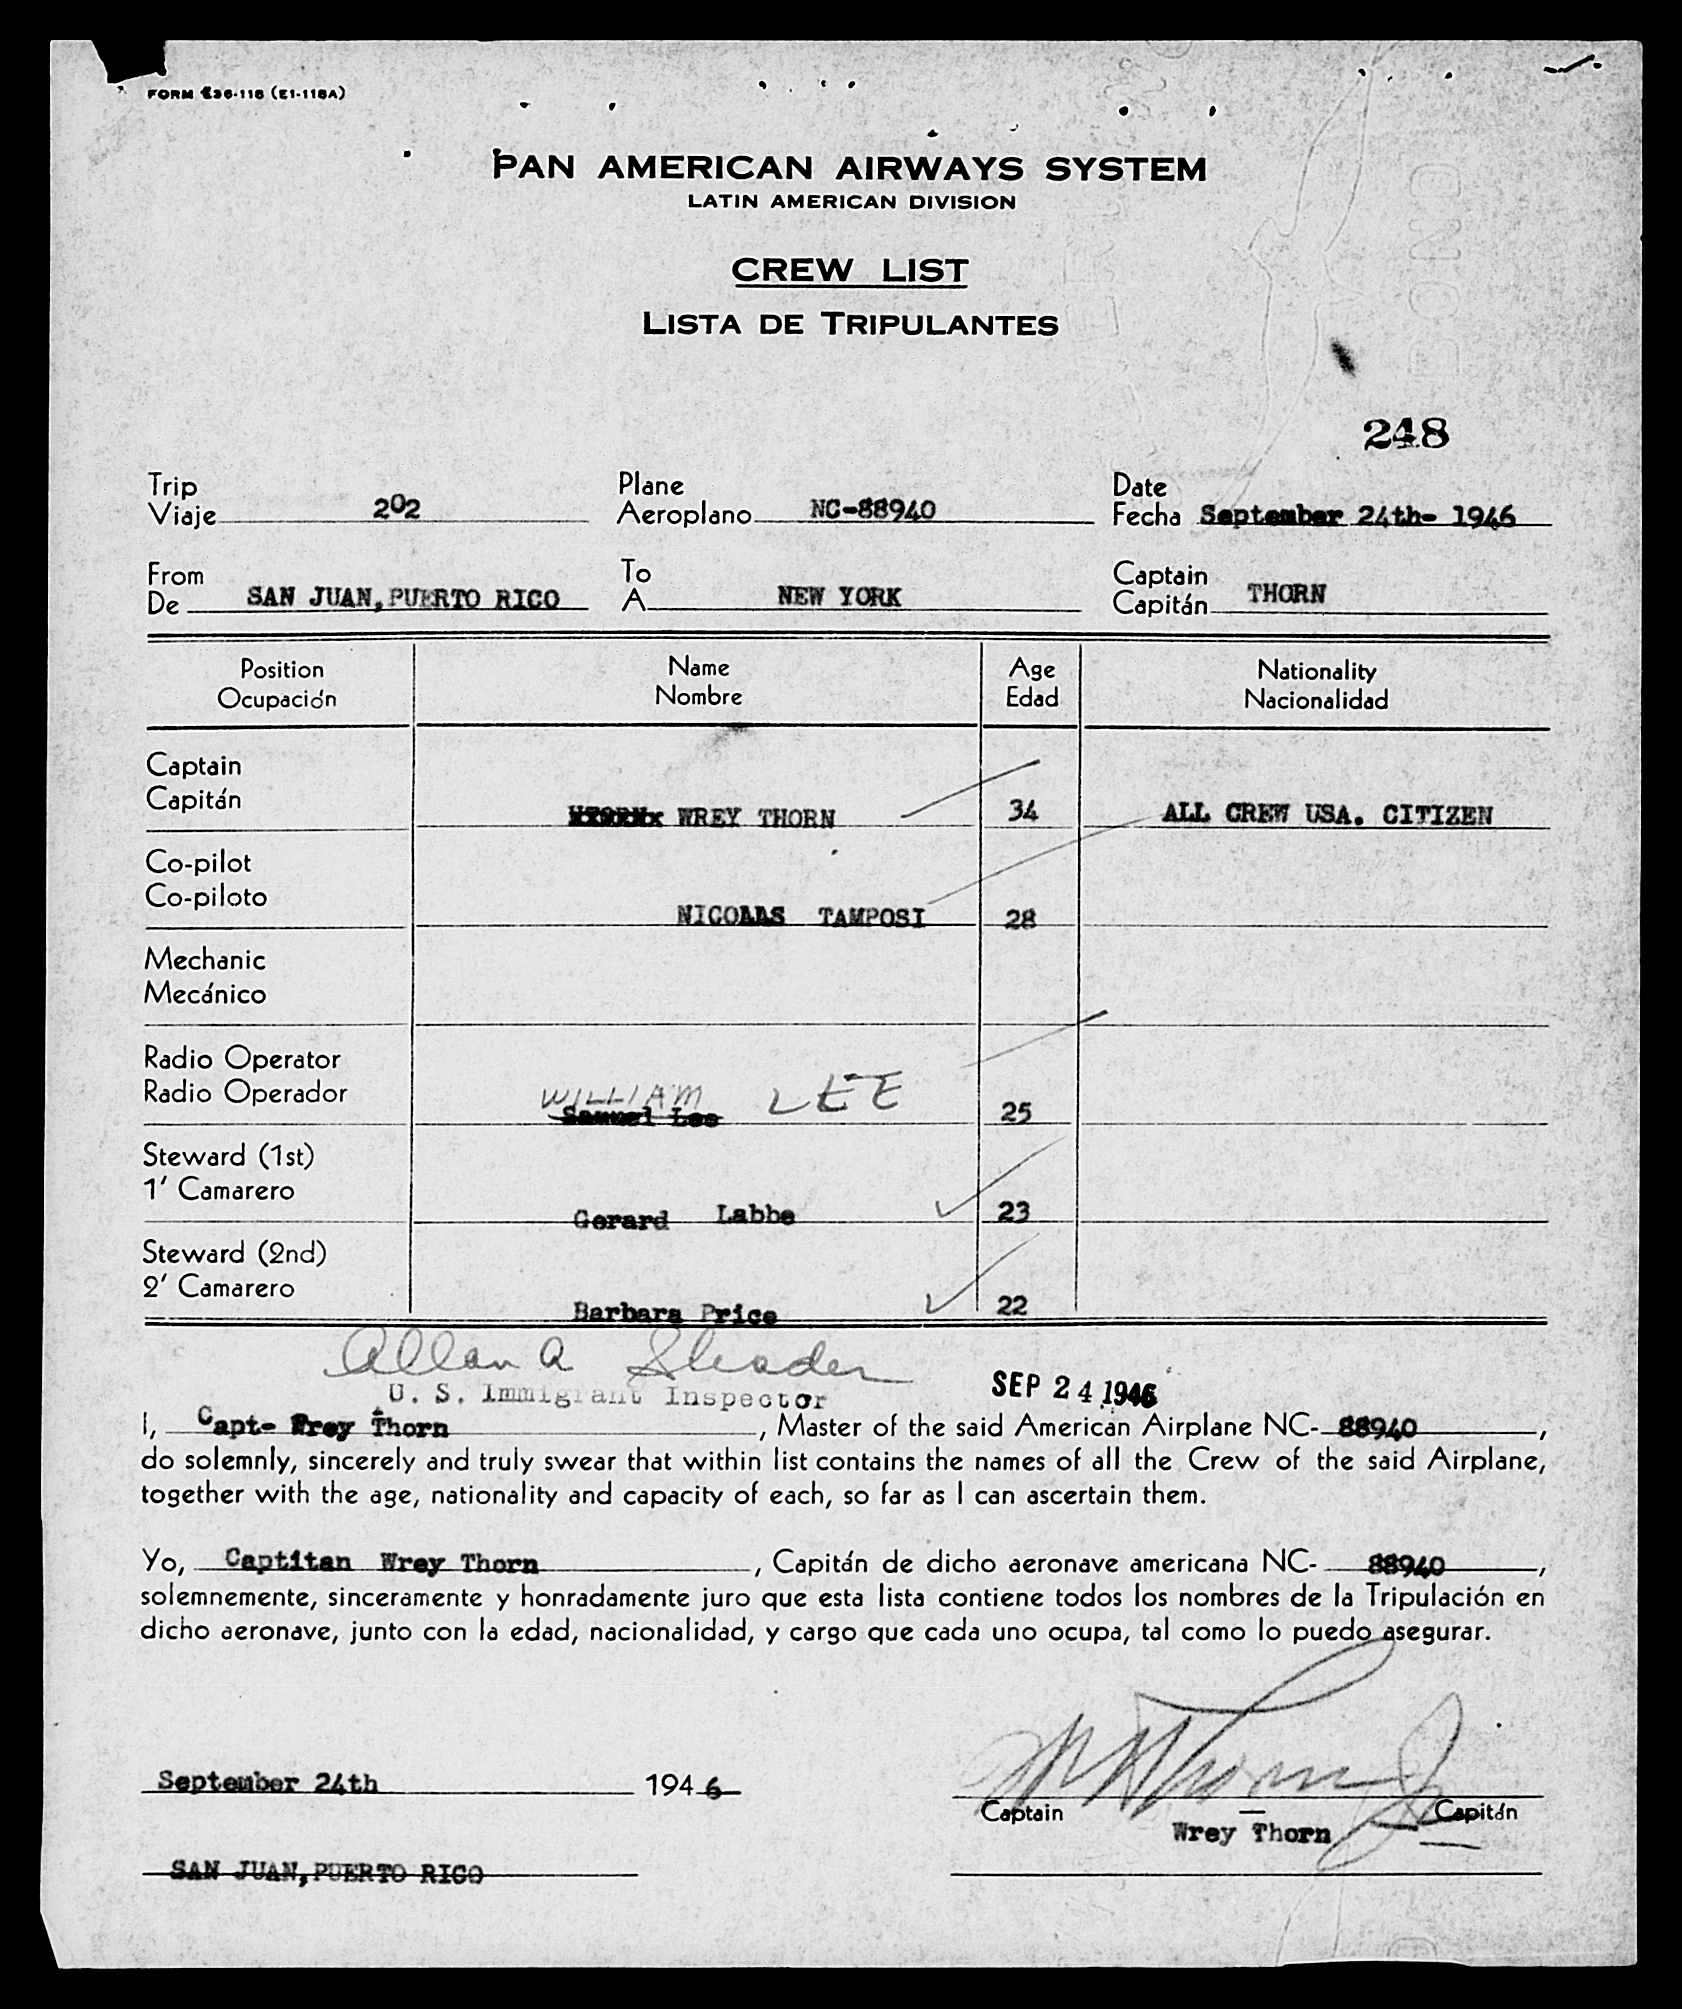 FORM E36-118 (E1-118A)
PAN AMERICAN AIRWAYS SYSTEM
LATIN AMERICAN DIVISION
CREW LIST
LISTA DE TRIPULANTES
248
Trip Plane Date
Viaje 202 Aeroplano NC-88940 Fecha September 24th- 1946
From To Captain
De SAN JUAN,PUERTO RICO A NEW YORK Capitán THORN
Position Name Age Nationality
Ocupación Nombre Edad Nacionalidad
Captain
Capitán WREY THORN 34 ALL CREW USA. CITIZEN
Co-pilot
Co-piloto NICOLAS TAMPOSI 28
Mechanic
Mecánico
Radio Operator
Radio Operador WILLIAM LEE
Samuel Lee 25
Steward (1st)
1' Camarero Gerard Labbe 23
Steward (2nd)
2' Camarero Barbara Price 22
Allan A Sleader
U. S. Immigrant Inspector SEP 24 1946
I, Capt- Wrey Thorn, Master of the said American Airplane NC- 88940,
do solemnly, sincerely and truly swear that within list contains the names of all the Crew of the said Airplane,
together with the age, nationality and capacity of each, so far as I can ascertain them.
Yo, Captitan Wrey Thorn, Capitán de dicho aeronave americana NC- 88940,
solemnemente, sinceramente y honradamente juro que esta lista contiene todos los nombres de la Tripulación en
dicho aeronave, junto con la edad, nacionalidad, y cargo que cada uno ocupa, tal como lo puedo asegurar.
September 24th 1946 W Thorn Jr
Captain Capitán
Wrey Thorn
SAN JUAN,PUERTO RICO